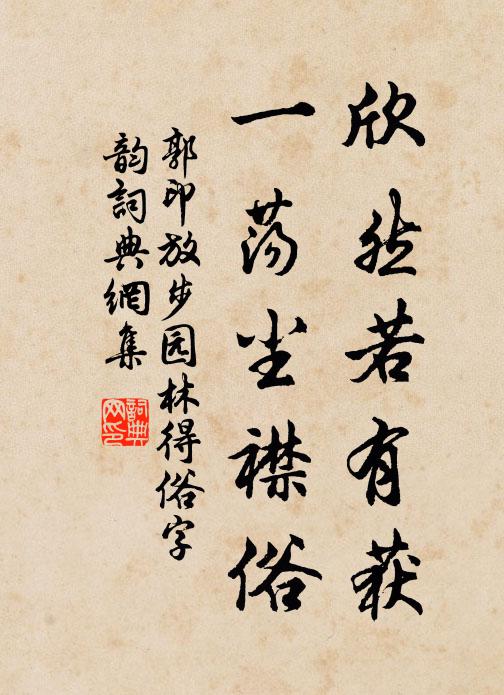 欣然若有获
一荡尘襟俗
郭印放步园林得俗字
韵词典网集
詞典网印